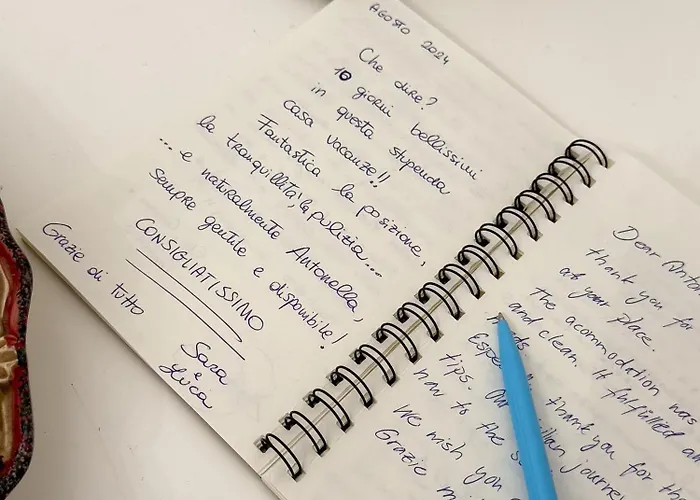 AGOSTO 2024
Che dire?
10 giorni bellissimi
in questa stupenda
casa vacanze!!
Fantastica la posizione,
la tranquillità, la pulizia...
... e naturalmente Antonella,
sempre gentile e disponibile!
CONSIGLIATISSIMO
Grazie di tutto
Sara
e
Luca
Dear
thank you for
at your place.
The acommodation was
and clean. It fulfilled
tips. thank you for the
how to the
journey
We wish you
Grazie